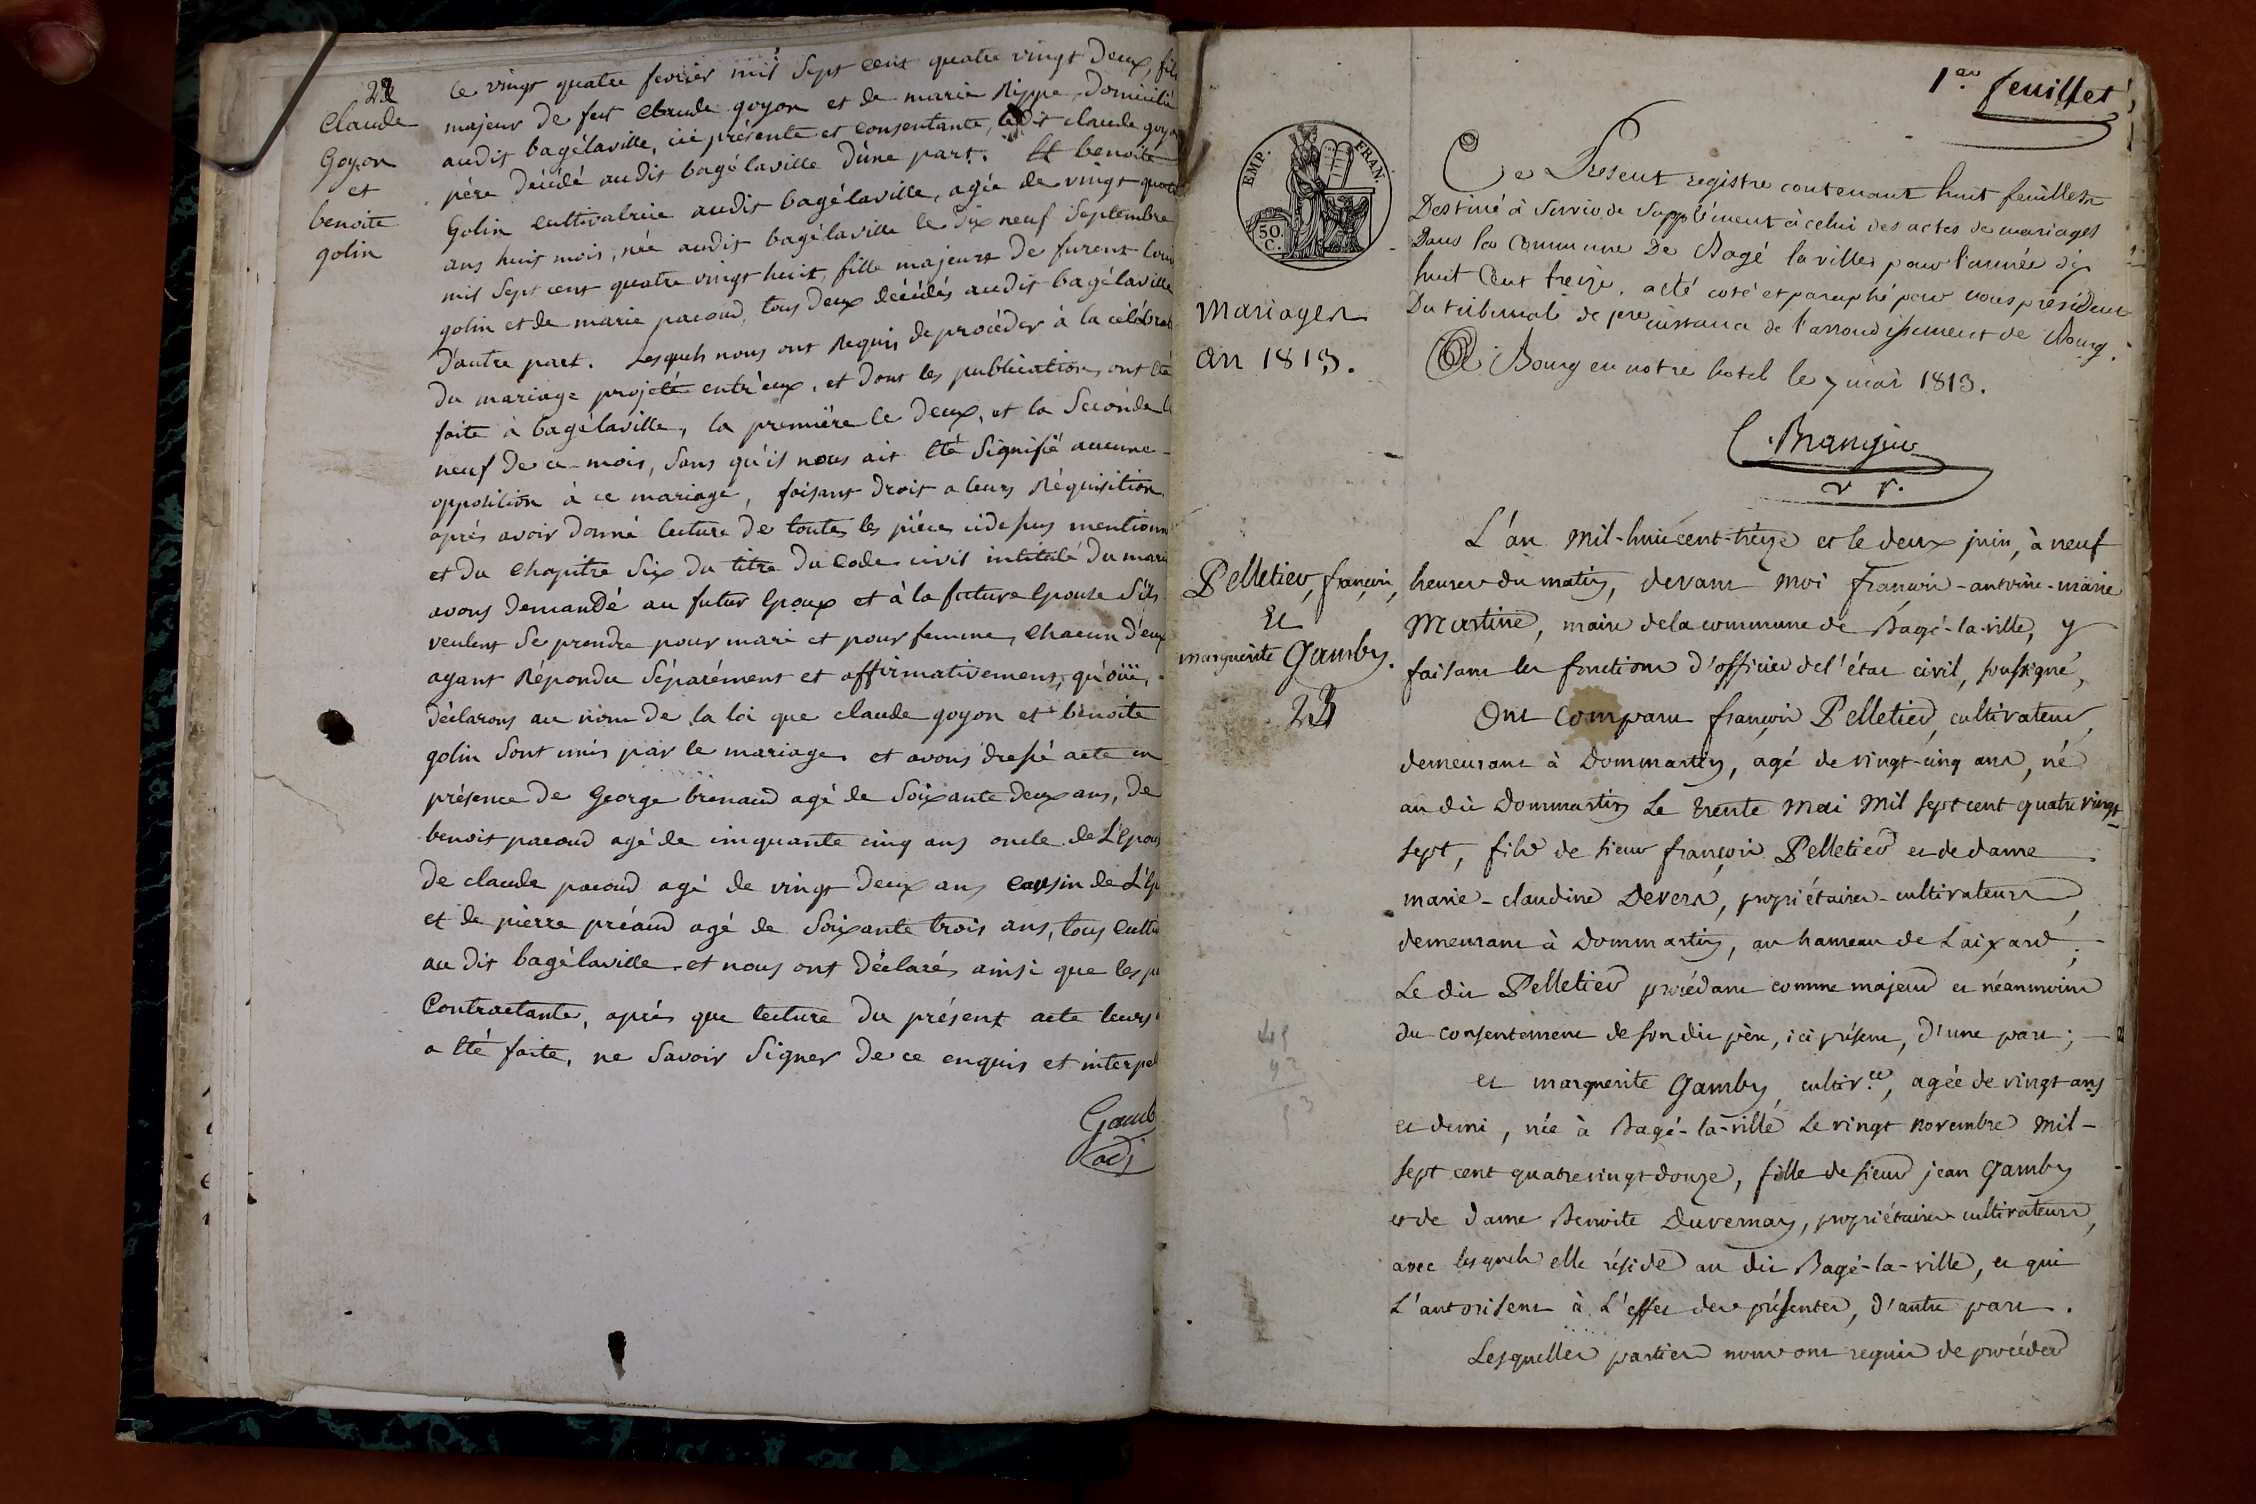 22
Claude
Goyon
et
benoite
golin
le vingt quatre fevrier mil sept cent quatre vingt deux, fils
majeur de feu Claude goyon et de marie Rippe, domicilié
audit bagélaville, ici présente et consentante, ledit claude goyon
père décédé audit bagélaville d'une part. Et benoite
Golin cultivatrice audit bagélaville, agée de vingt quatre
ans huit mois, née audit bagélaville le dix neuf Septembre
mil Sept cent quatre vingt huit, fille majeure de furent Louis
golin et de marie pacoud, tous deux décédés audit bagélaville
d'autre part. Lesquels nous ont Requis de procéder à la célébrat
du mariage projeté entr'eux, et dont les publications ont été
faite à bagélaville, la première le deux, et la Seconde le
neuf de ce mois, Sans qu'il nous ait été Signifié aucune
opposition à ce mariage, faisant droit a leurs Réquisition
après avoir donné lecture de toutes les pièces cidessus mentionn
et du Chapitre Six du titre du Code civil intitulé du mari
avons demandé au futur Epoux et à la future Epouse S'ils
veulent Se prendre pour mari et pour femme, Chacun d'eux
ayant Répondu Séparément et affirmativement, qu'oüi,
déclarons au nom de la loi que claude goyon et benoite
golin Sont unis par le mariage et avons dressé acte en
présence de George brenaud agé de Soixante deux ans, de
benoit pacoud agé de cinquante cinq ans oncle de L'Epous
de claude pacoud agé de vingt deux ans Cousin de L'Ep
et de pierre préaud agé de Soixante trois ans, tous Culti
au dit bagélaville et nous ont déclarés ainsi que les p
Contractante, après que lecture du présent acte leurs
a été faite, ne Savoir Signer de ce enquis et interpel
Gamb
adj
1er feuillet
EMP. FRAN.
50.
C.
Mariages
an 1813.
Ce Présent registre contenant huit feuillets
Destiné à Servir de Supplément à celui des actes de mariages
Dans la Commune De Bagé la ville pour l'année dix
huit Cent treize, a été coté et paraphé par nous président
Du tribunal de 1ere instance de l'arrondissement de Bourg.
A Bourg en notre hotel le 7 mai 1813.
Pelletier, françois,
Et
marguerite Gamby.
23
L'an Mil-huit cent-treize et le deux juin, à neuf
heures du matin, devant Moi françois-antoine-marie
Martine, maire de la commune de Bagé-la-ville, y
faisant les fonctions d'officier de l'état civil, soussigné,
Ont Comparu françois Pelletier, cultivateur,
demeurant à Dommartin, agé de vingt-cinq ans, né
au dit Dommartin Le trente Mai Mil sept cent quatre vingt
sept, fils de sieur françois Pelletier et de dame
marie-claudine Devers, propriétaires-cultivateurs,
demeurant à Dommartin, au hameau de Laixard;
Le dit Pelletier procédant comme majeur et néanmoins
du consentement de son dit père, ici présent, d'une part;
et marguerite Gamby, cultiv.ce, agée de vingt ans
et demi, née à Bagé-la-ville Le vingt Novembre Mil-
sept cent quatrevingt douze, fille de sieur jean Gamby
et de dame Benoite Duvernay, propriétaires cultivateurs,
avec lesquels elle réside au dit Bagé-la-ville, et qui
L'autorisent à L'effet des présentes, d'autre part.
Lesquelles parties nous ont requis de procéder